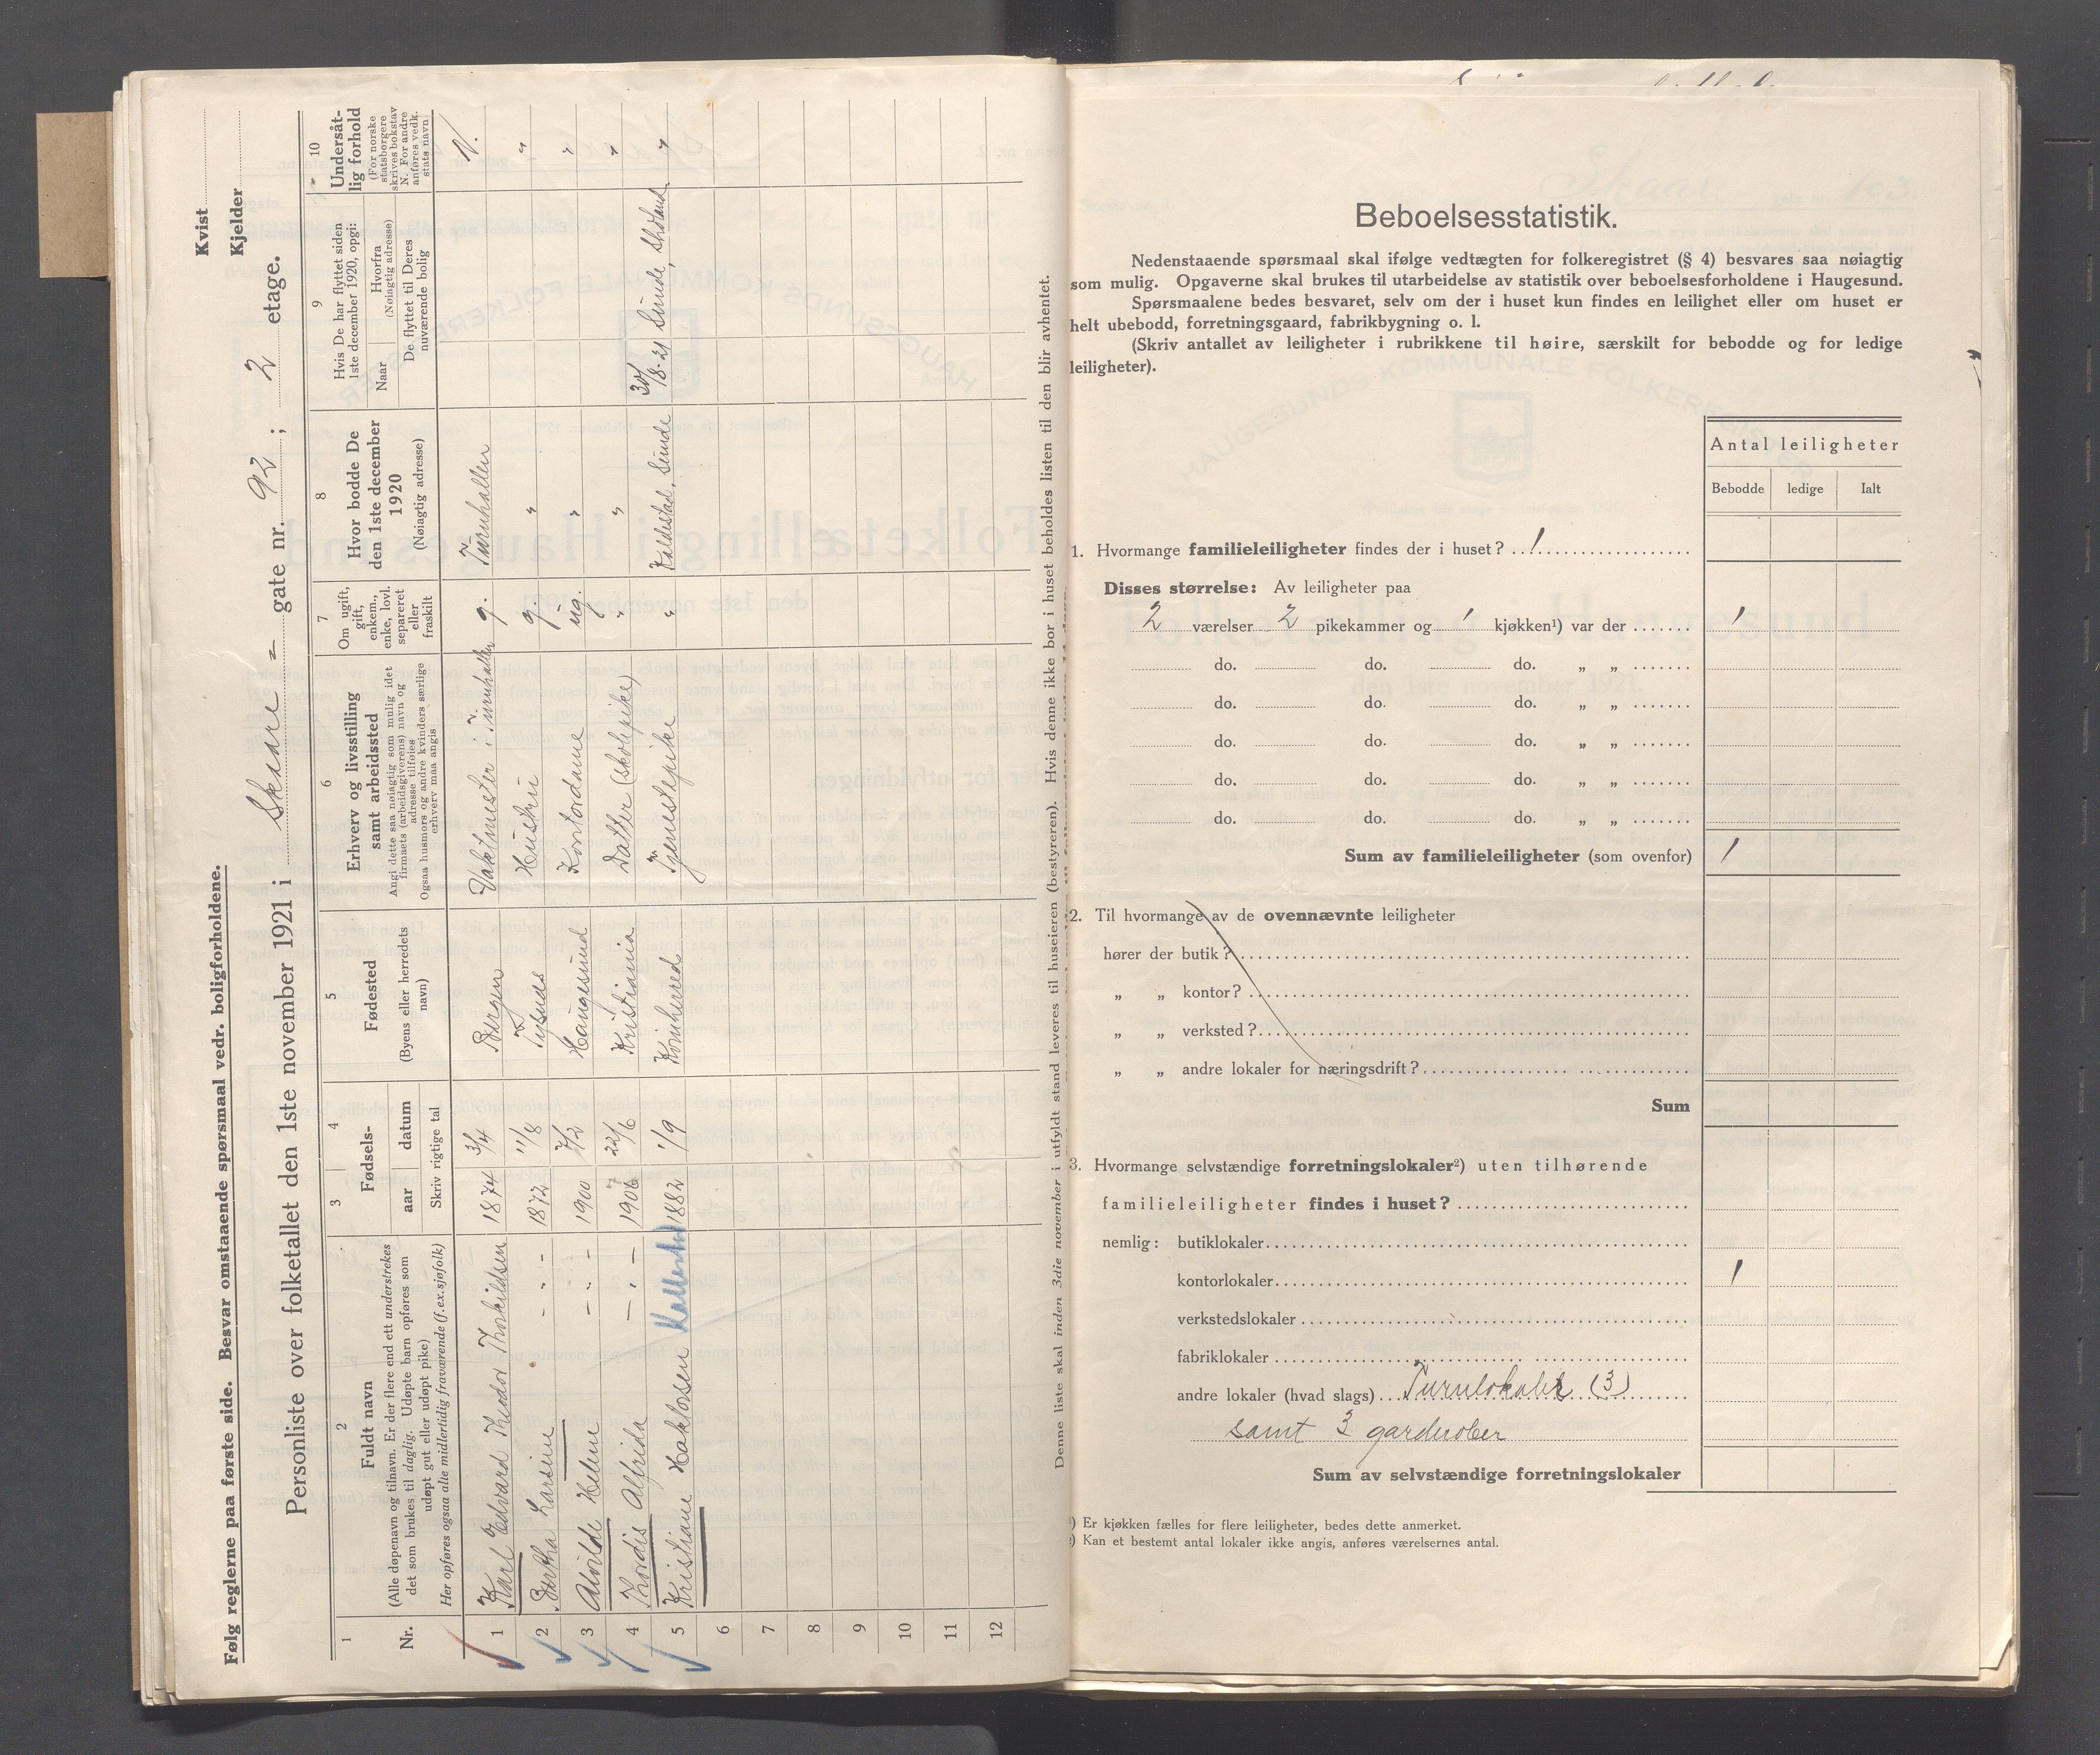 Følg reglerne paa første side. Besvar omstaaende spørsmaal vedr. boligforholdene.
Kvist
Kjelder
Personliste over folketallet den 1ste november 1921 i Skaare - gate nr. 92; 2 etage.
1 2 3 4 5 6 7 8 9 10
Nr.
Fuldt navn
(Alle døpenavn og tilnavn. Er der flere end ett understrekes
det som brukes til daglig. Udøpte barn opføres som
udøpt gut eller udøpt pike)
Her opføres ogsaa alle midlertidig fraværende (f.ex. sjøfolk)
Fødsels-
aar datum
Skriv rigtige tal
Fødested
(Byens eller herredets
navn)
Erhverv og livsstilling
samt arbeidssted
Angi dette saa nøiagtig som mulig idet
firmaets (arbeidsgiverens) navn og
adresse tilføies
Ogsaa husmors og andre kvinders særlige
erhverv maa angis
Om ugift,
gift,
enkem.,
enke, lovl.
separeret
eller
fraskilt
Hvor bodde De
den 1ste december
1920
(Nøiagtig adresse)
Hvis De har flyttet siden
1ste december 1920, opgi:
Naar
Hvorfra
(Nøiagtig adresse)
De flyttet til Deres
nuværende bolig
Undersåt-
lig forhold
(For norske
statsborgere
skrives bokstav
N. For andre
anføres vedk.
stats navn
1 Karl Edvard Theodor Thorkildsen 1874 3/4 Bergen Vaktmester i Turnhallen g. Turnhallen N.
2 Bertha Larsine - " - 1872 11/8 Tysnes Hustru g. " "
3 Alvilde Helene - " - 1900 7/2 Haugesund Kontordame ug. " "
4 Thordis Alfrida - " - 22/6 Kristiania Datter (skolepike) " " "
5 Kristiane Haklosen 1882 1/9 Kvinherred Tjenestepike " Sunde 30/8-21 Sunde, "
6
7
8
9
10
11
12
Denne liste skal inden 3die november i utfyldt stand leveres til huseieren (bestyreren). Hvis denne ikke bor i huset beholdes listen til den blir avhentet.
Skaare 103
Beboelsesstatistik.
Nedenstaaende spørsmaal skal ifølge vedtægten for folkeregistret (§ 4) besvares saa nøiagtig
som mulig. Opgaverne skal brukes til utarbeidelse av statistik over beboelsesforholdene i Haugesund.
Spørsmaalene bedes besvaret, selv om der i huset kun findes en leilighet eller om huset er
helt ubebodd, forretningsgaard, fabrikbygning o. l.
(Skriv antallet av leiligheter i rubrikkene til høire, særskilt for bebodde og for ledige
leiligheter).
Antal leiligheter
Bebodde ledige Ialt
1. Hvormange familieleiligheter findes der i huset? 1
Disses størrelse: Av leiligheter paa
2 værelser 2 pikekammer og 1 kjøkken¹) var der 1
do. do. do. „ „
do. do. do. „ „
do. do. do. „ „
do. do. do. „ „
do. do. do. „ „
Sum av familieleiligheter (som ovenfor) 1
2. Til hvormange av de ovennævnte leiligheter
hører der butik?
„ „ kontor?
„ „ verksted?
„ „ andre lokaler for næringsdrift?
Sum
3. Hvormange selvstændige forretningslokaler²) uten tilhørende
familieleiligheter findes i huset?
nemlig: butiklokaler
kontorlokaler 1
verkstedslokaler
fabriklokaler
andre lokaler (hvad slags) Turnlokaler (3)
samt 3 garderober
Sum av selvstændige forretningslokaler
¹) Er kjøkken fælles for flere leiligheter, bedes dette anmerket.
²) Kan et bestemt antal lokaler ikke angis, anføres værelsernes antal.